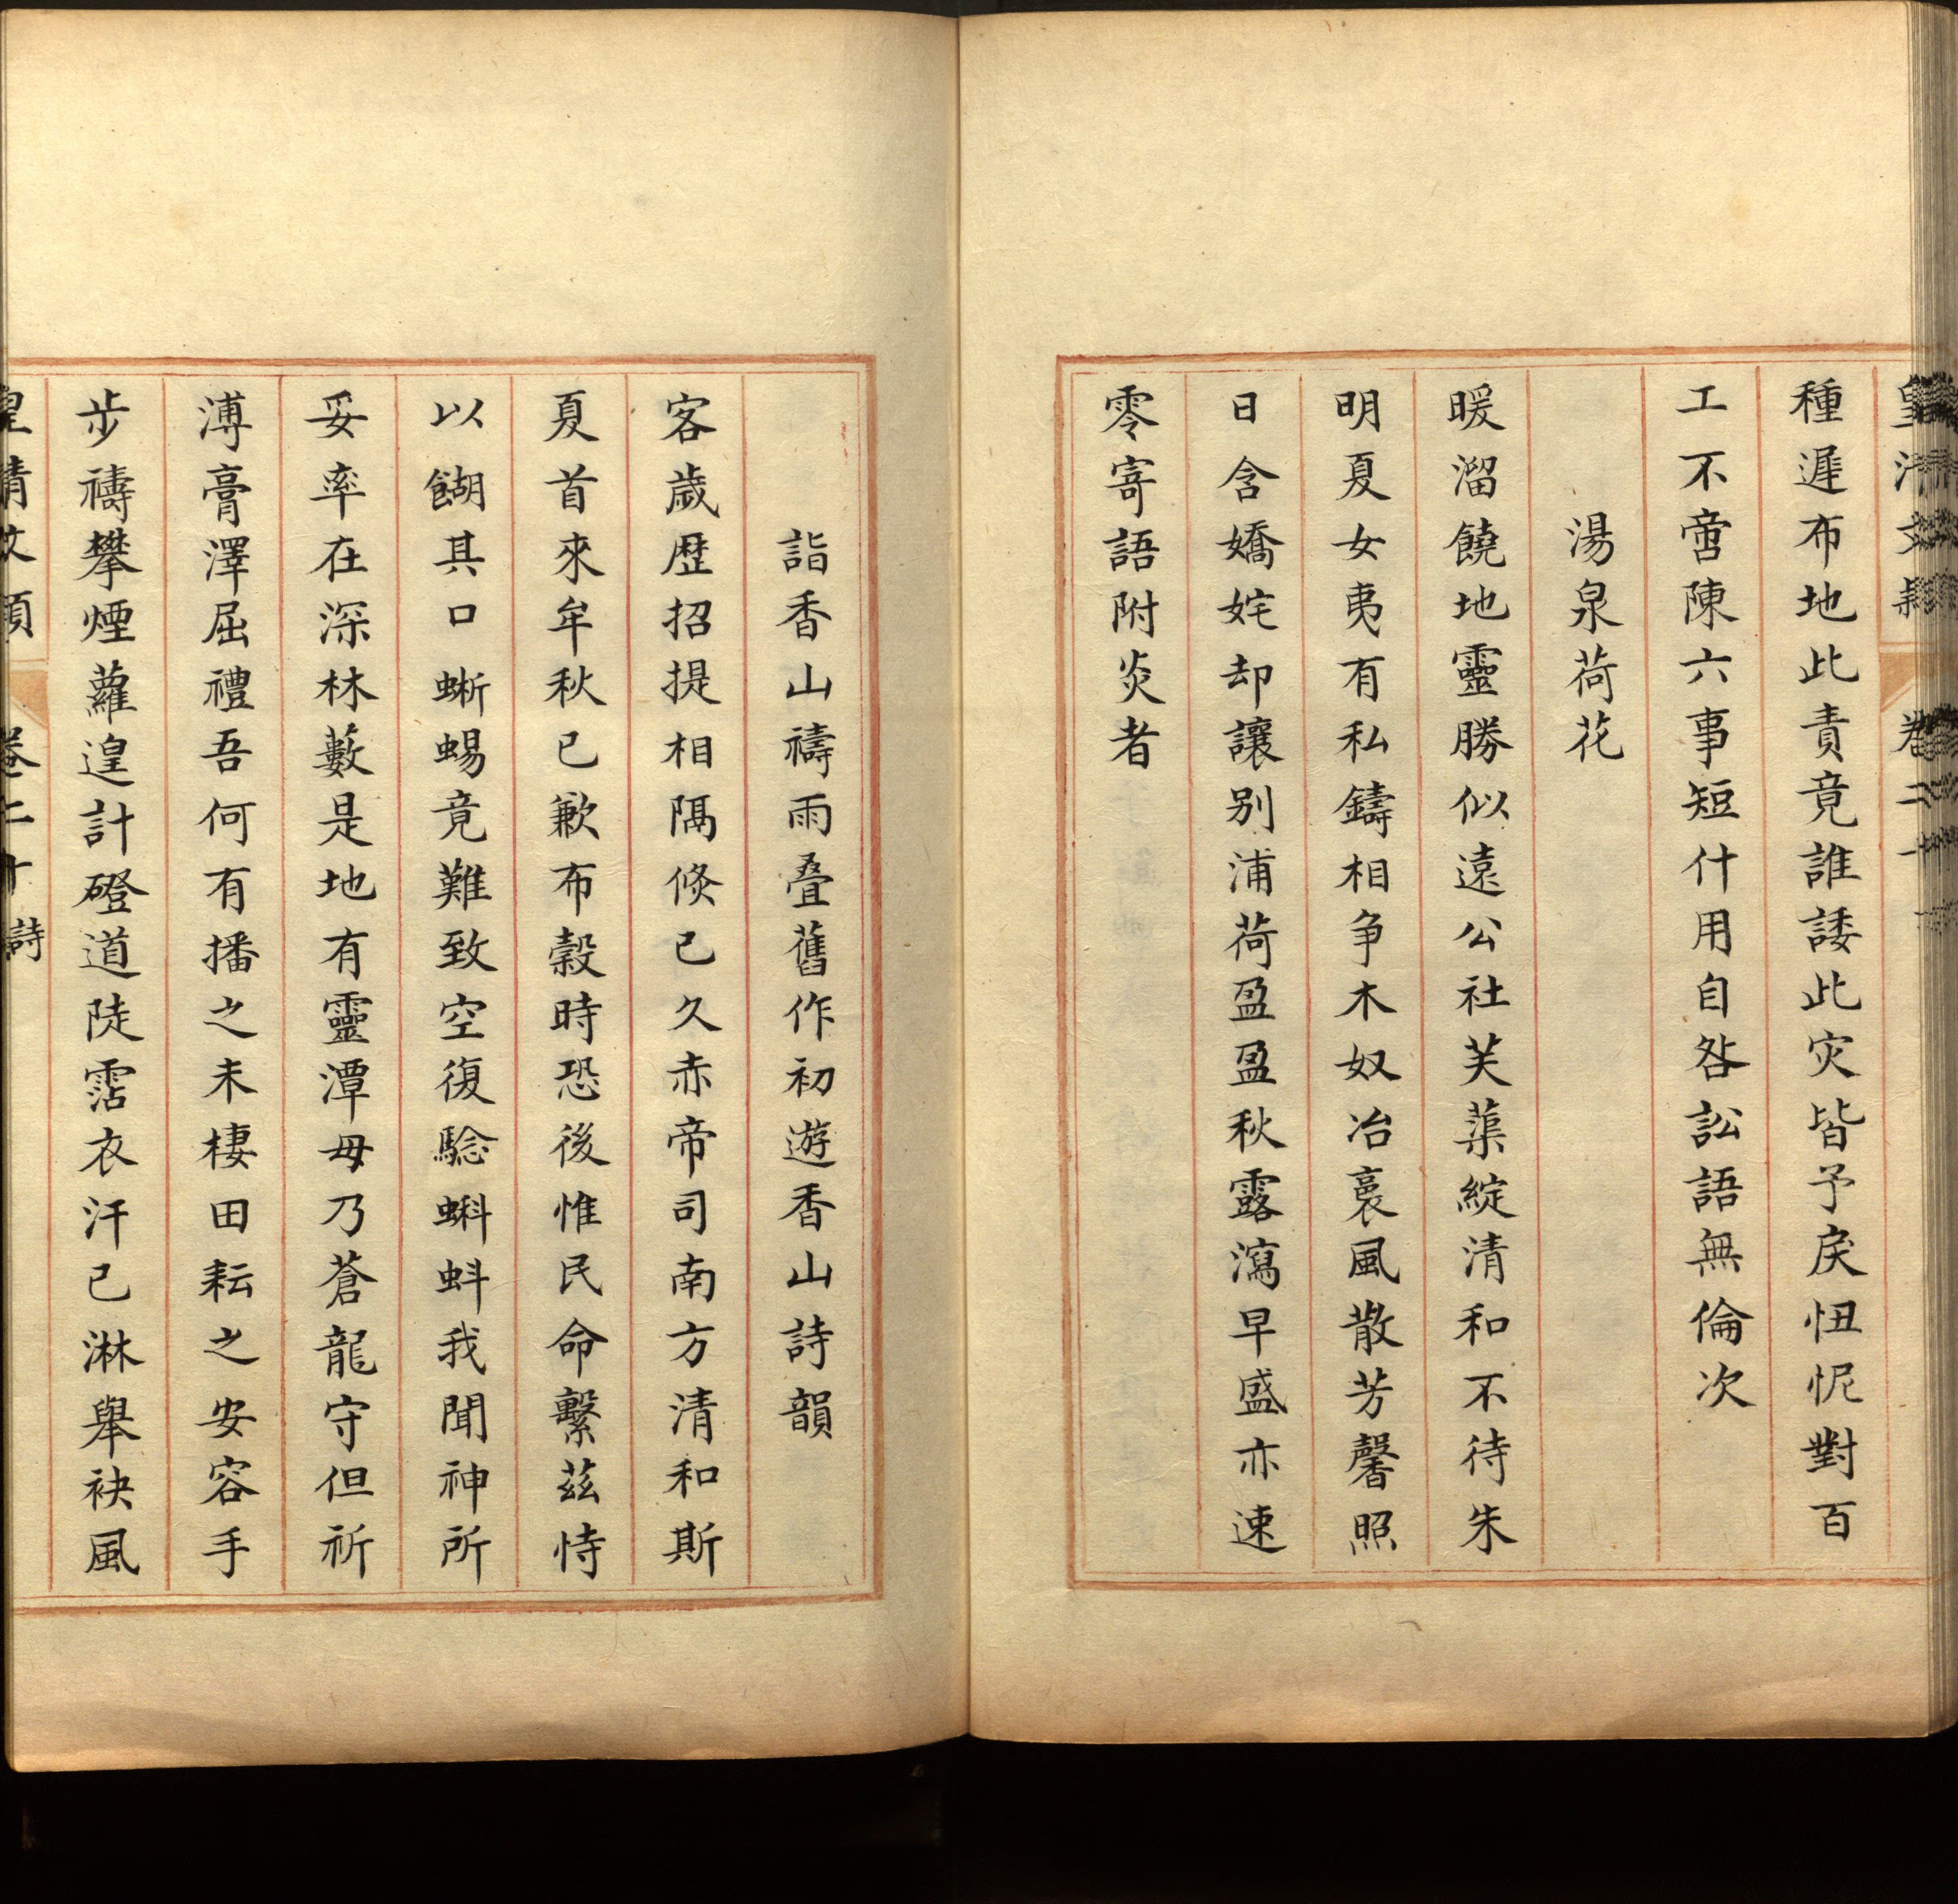 種遲布地此責竟誰諉此灾皆予戾忸怩對百
工不啻陳六事短什用自咎訟語無倫次
湯泉荷花
暖溜饒地靈勝似遠公社芙蕖綻清和不待朱
明夏女夷有私鑄相争木奴冶裛風散芳馨照
日含嬌姹却讓别浦荷盈盈秋露瀉早盛亦速
零寄語附炎者
詣香山禱雨叠舊作初遊香山詩韻
客歲歷招提相隔倏已久赤帝司南方清和斯
夏首來牟秋已歉布糓時恐後惟民命繫茲恃
以餬其口蜥蜴竟難致空復騐蝌蚪我聞神所
妥率在深林藪是地有靈潭毋乃蒼龍守但祈
溥膏澤屈禮吾何有播之未棲田耘之安容手
步禱攀煙蘿遑計磴道陡霑衣汗已淋舉袂風
皇清文穎 卷二十 詩